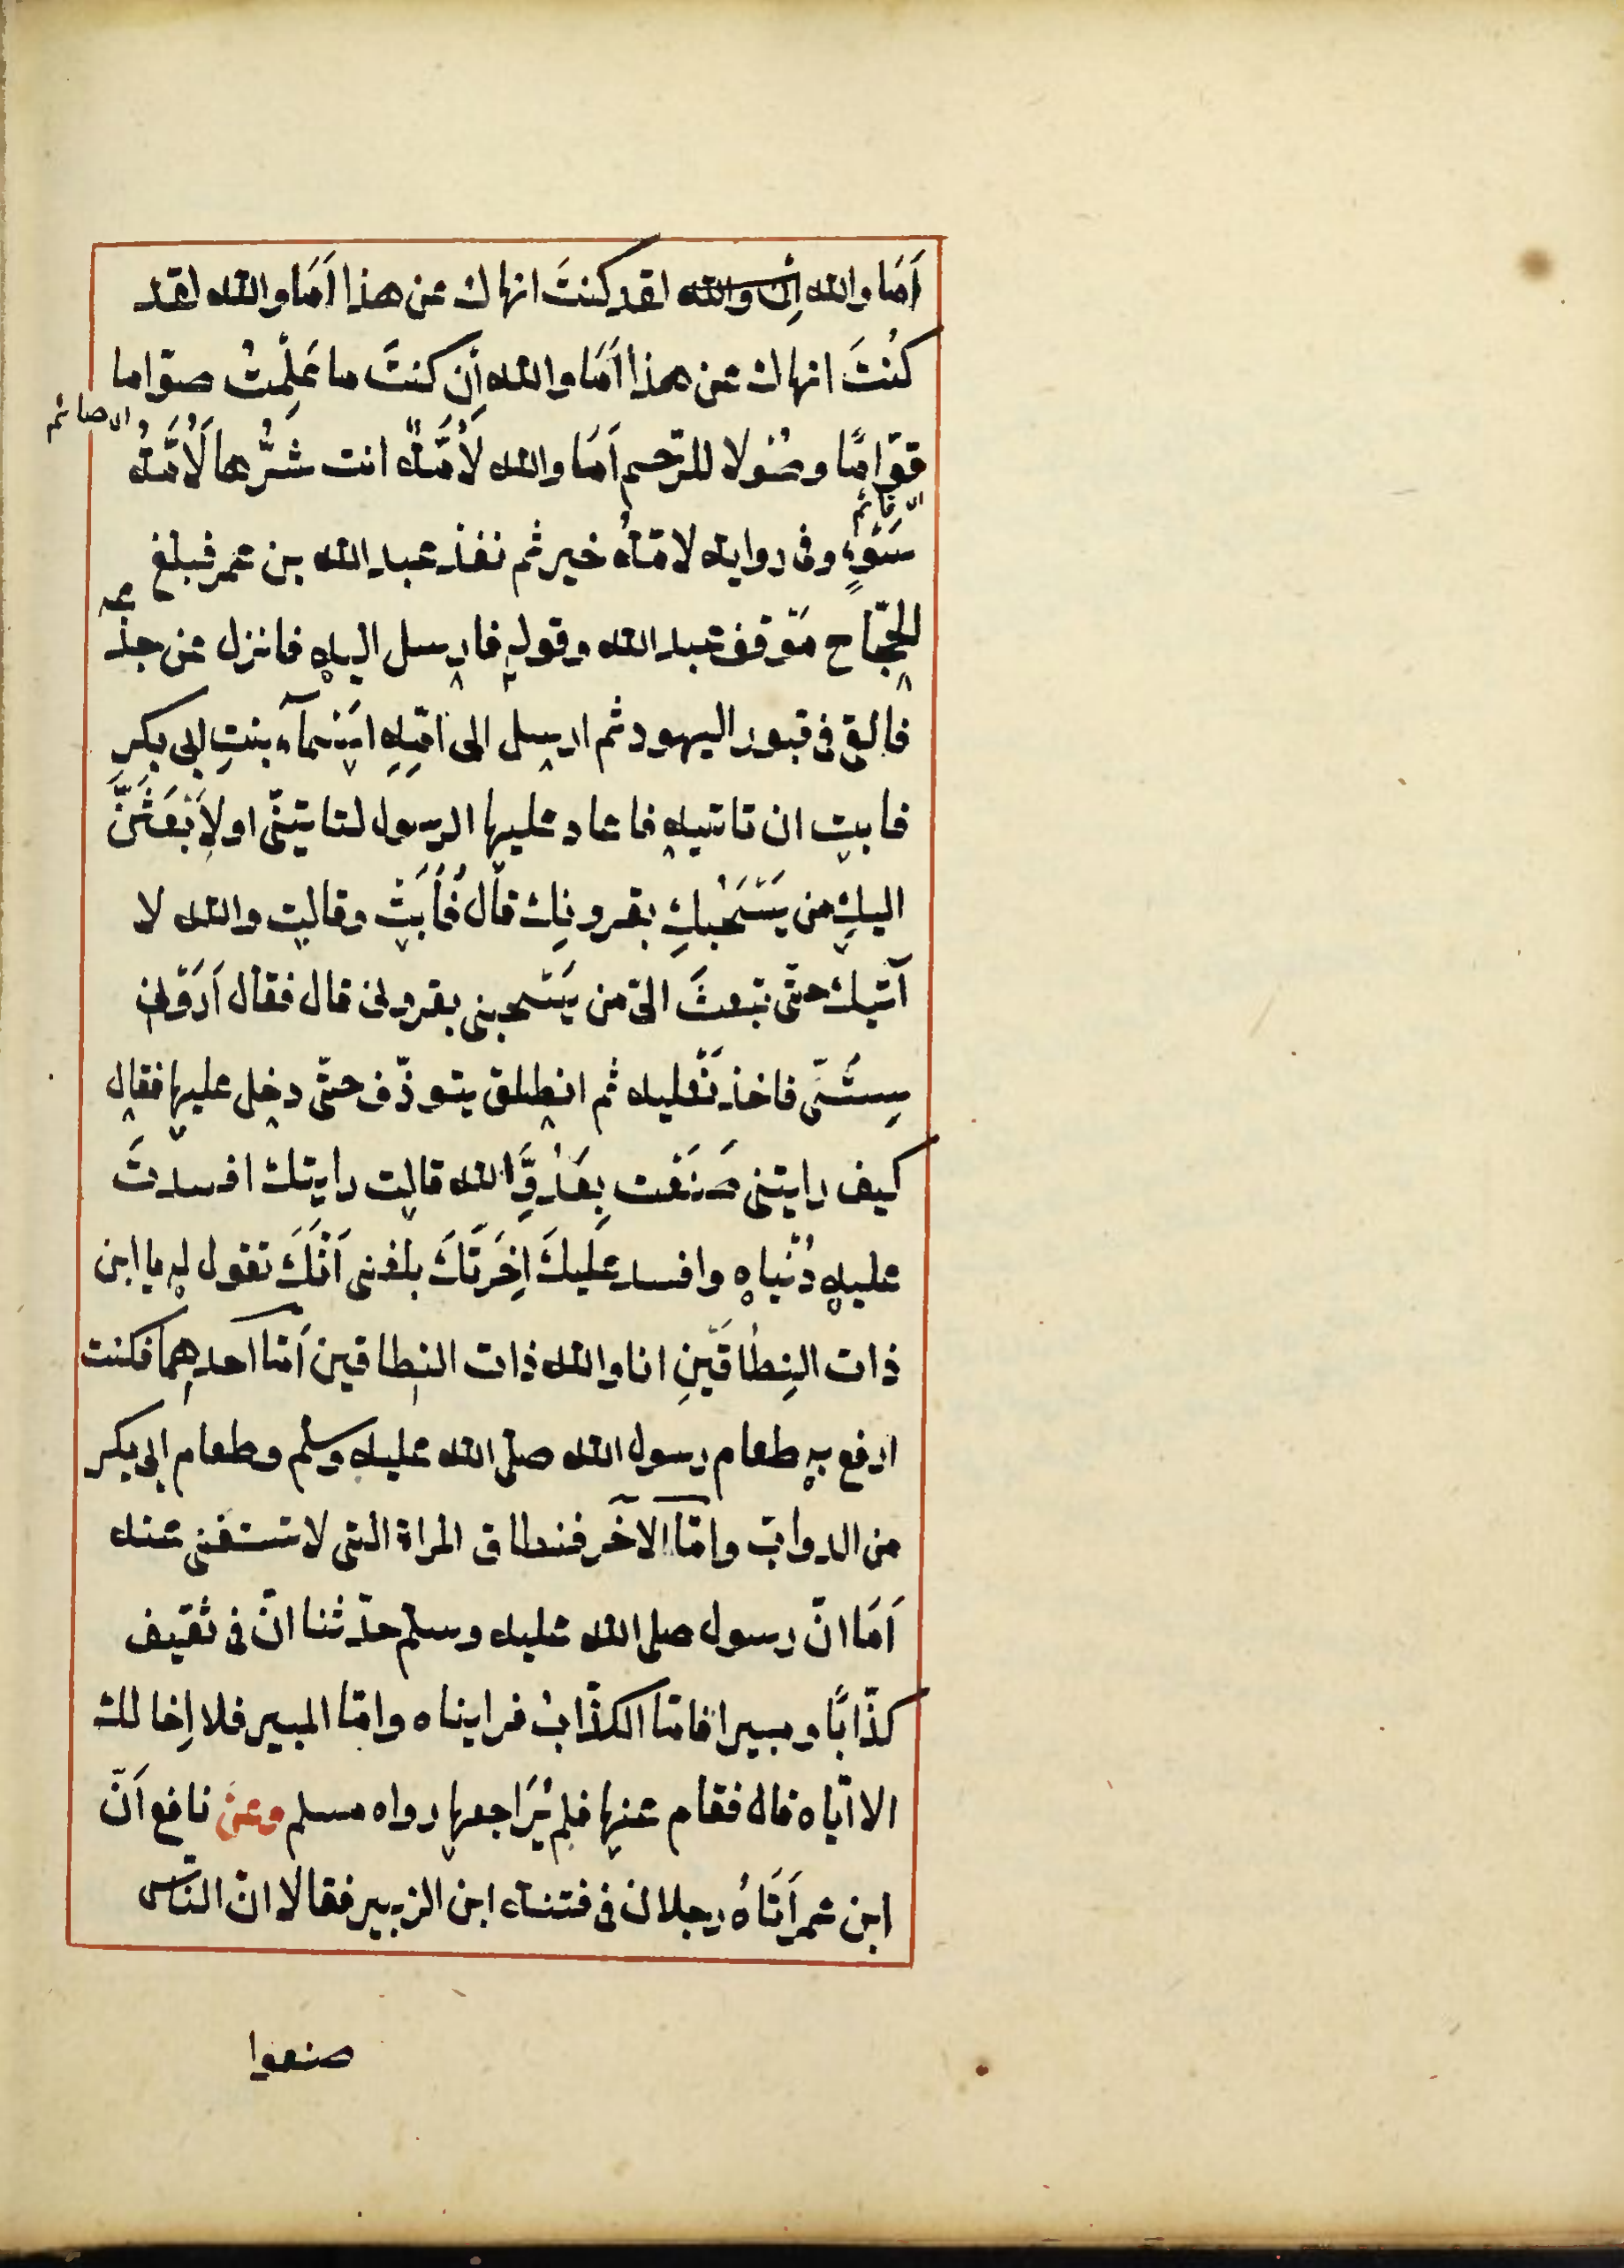 اَمَا والله اِن والله لقد كنتَ انهاك عن هذا اَمَا والله لقد
كُنتَ انهاك عن هذا اَمَا والله اِن كنتَ ما عَلِمتُ صوّاما
ای صائم
قوّامًا وصُولا للرّحم اَمَا والله لَاُمَّةٌ انت شَرُّها لَاُمَّةُ
ای قائم
سَوءٍ وفى رواية لامّةُ خير ثم نفذ عبد الله بن عمر فبلغ
الحجّاج مَوقف عبد الله وقوله فارسل اليه فانزل عن جذعه
فالقى فى قبور اليهود ثم ارسل الى امّهِ اَسْمآء بنتِ ابى بكرٍ
فابت ان تاتيه فاعاد عليها الرسول لتاتينّى اولَاَبْعَثَنَّ
اليكِ من يَسْحَبُكِ بقرونِك قال فَاَبَتْ وقالت والله لا
آتيك حتّى تبعثَ الىّ من يَسْحبنى بقرونى قال فقال اَرَوْنى
سِبْتَىَّ فاخذ نَعْليه ثم انطلق يتوذّف حتّى دخل عليها فقال
كيف رايتنى صَنَعْت بِعَدُوِّ الله قالت رايتك افسدتَ
عليه دُنْياه وافسد عَليكَ اٰخِرَتَكَ بلغنى اَنَّكَ تقول له يا ابن
ذات النِطَاقَينِ انا والله ذات النطاقين اَمّا احدهما فكنت
ارفع به طعام رسول الله صلى الله عليه وسلم وطعام ابى بكر
من الدوابّ وامّا الآخر فنطاق المراة التى لا تستغنى عنه
اَمَا انّ رسول صلى الله عليه وسلم حدّثنا انّ فى ثقيف
كذّابًا ومبيرا فامّا الكذّابُ فرايناه وامّا المبير فلا اِخالك
الا ايّاه قال فقام عنها فلم يُرَاجعها رواه مسلم وعن نافع اَنّ
ابن عمر اَتَاهُ رجلان فى فتنة ابن الزبير فقالا انّ النّاس
صنعوا